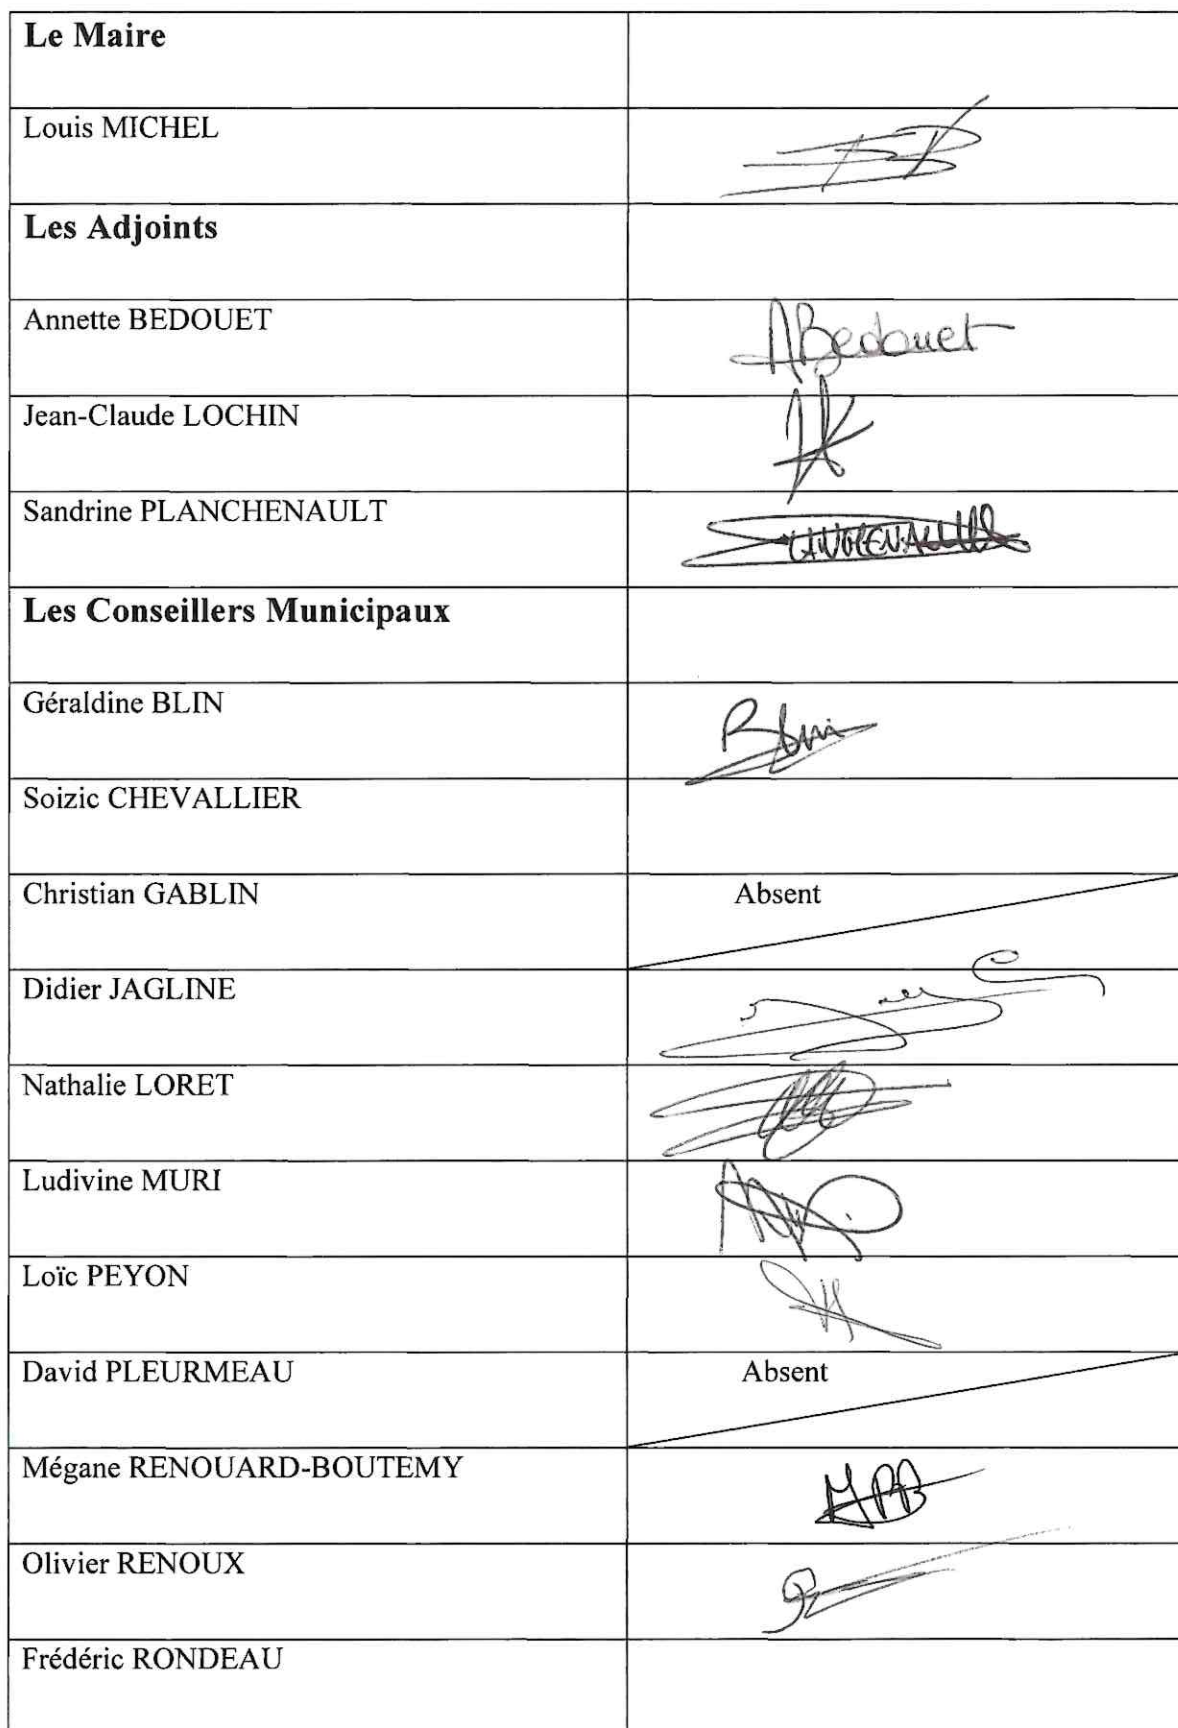 Le Maire
Louis MICHEL
Les Adjoints
Annette BEDOUET
ABedouet
Jean-Claude LOCHIN
Sandrine PLANCHENAULT
Les Conseillers Municipaux
Géraldine BLIN
Soizic CHEVALLIER
Christian GABLIN
Absent
Didier JAGLINE
Nathalie LORET
Ludivine MURI
Loïc PEYON
David PLEURMEAU
Absent
Mégane RENOUARD-BOUTEMY
MRB
Olivier RENOUX
Frédéric RONDEAU